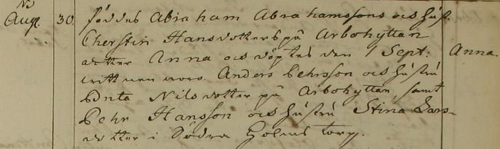 Aug. 30. föddes Abraham Abrahamssons och hust.
Cherstin Hansdotters på Arbohyttan
dotter Anna och döptes den 1 Sept. Anna.
wittnen woro Anders Pehrsson och hustru
Nilsdotter på Arbohyttan, samt
Pehr Hansson och hustru Stina Lars-
dotter i Södra torp.